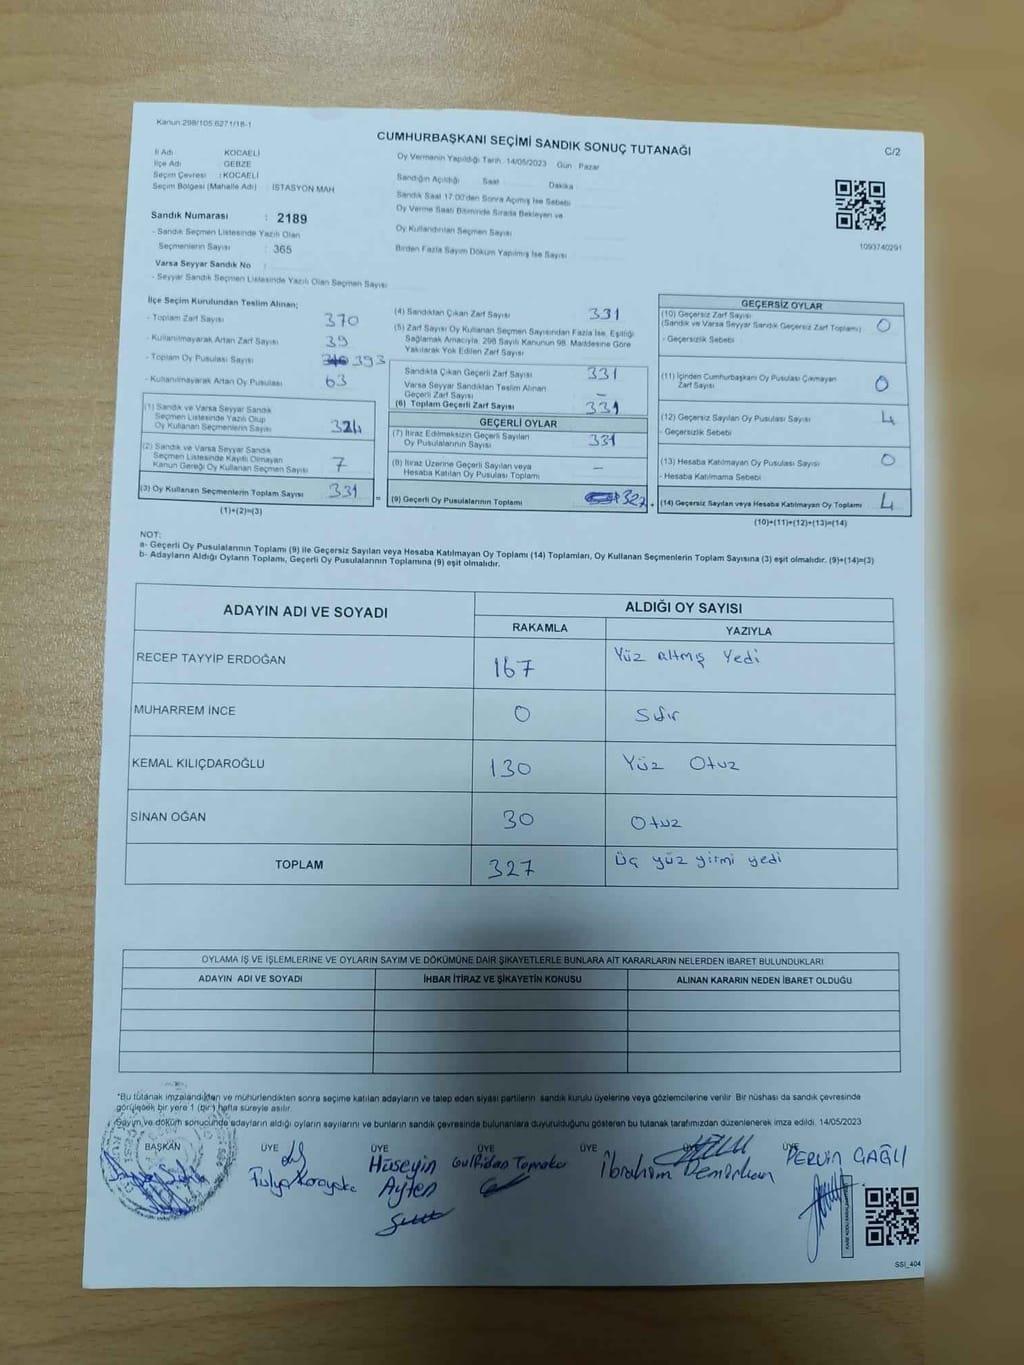 Kanun 298/105 6271/18-1
CUMHURBAŞKANI SEÇİMİ SANDIK SONUÇ TUTANAĞI
C/2
İl Adı KOCAELİ
İlçe Adı GEBZE
Seçim Çevresi : KOCAELİ
Seçim Bölgesi (Mahalle Adı) : İSTASYON MAH
Sandık Numarası : 2189
- Sandık Seçmen Listesinde Yazılı Olan
Seçmenlerin Sayısı : 365
Varsa Seyyar Sandık No :
- Seyyar Sandık Seçmen Listesinde Yazılı Olan Seçmen Sayısı
Oy Vermenin Yapıldığı Tarih : 14/05/2023 Gün : Pazar
Sandığın Açıldığı Saat Dakika
Sandık Saat 17.00'den Sonra Açılmış İse Sebebi
Oy Verme Saati Bitiminde Sırada Bekleyen ve
Oy Kullandırılan Seçmen Sayısı
Birden Fazla Sayım Döküm Yapılmış İse Sayısı
1093740291
İlçe Seçim Kurulundan Teslim Alınan;
- Toplam Zarf Sayısı 370
- Kullanılmayarak Artan Zarf Sayısı 39
- Toplam Oy Pusulası Sayısı 393
- Kullanılmayarak Artan Oy Pusulası 63
(1) Sandık ve Varsa Seyyar Sandık
Seçmen Listesinde Yazılı Olup
Oy Kullanan Seçmenlerin Sayısı 324
(2) Sandık ve Varsa Seyyar Sandık
Seçmen Listesinde Kayıtlı Olmayan
Kanun Gereği Oy Kullanan Seçmen Sayısı 7
(3) Oy Kullanan Seçmenlerin Toplam Sayısı 331 =
(1)+(2)=(3)
(4) Sandıktan Çıkan Zarf Sayısı 331
(5) Zarf Sayısı Oy Kullanan Seçmen Sayısından Fazla İse, Eşitliği
Sağlamak Amacıyla, 298 Sayılı Kanunun 98. Maddesine Göre
Yakılarak Yok Edilen Zarf Sayısı
Sandıkta Çıkan Geçerli Zarf Sayısı 331
Varsa Seyyar Sandıktan Teslim Alınan
Geçerli Zarf Sayısı –
(6) Toplam Geçerli Zarf Sayısı 331
GEÇERLİ OYLAR
(7) İtiraz Edilmeksizin Geçerli Sayılan
Oy Pusulalarının Sayısı 331
(8) İtiraz Üzerine Geçerli Sayılan veya
Hesaba Katılan Oy Pusulası Toplamı –
(9) Geçerli Oy Pusulalarının Toplamı 327 +
GEÇERSİZ OYLAR
(10) Geçersiz Zarf Sayısı
(Sandık ve Varsa Seyyar Sandık Geçersiz Zarf Toplamı) 0
- Geçersizlik Sebebi
(11) İçinden Cumhurbaşkanı Oy Pusulası Çıkmayan
Zarf Sayısı 0
(12) Geçersiz Sayılan Oy Pusulası Sayısı 4
- Geçersizlik Sebebi
(13) Hesaba Katılmayan Oy Pusulası Sayısı 0
- Hesaba Katılmama Sebebi
(14) Geçersiz Sayılan veya Hesaba Katılmayan Oy Toplamı 4
(10)+(11)+(12)+(13)=(14)
NOT:
a- Geçerli Oy Pusulalarının Toplamı (9) ile Geçersiz Sayılan veya Hesaba Katılmayan Oy Toplamı (14) Toplamları, Oy Kullanan Seçmenlerin Toplam Sayısına (3) eşit olmalıdır. (9)+(14)=(3)
b- Adayların Aldığı Oyların Toplamı, Geçerli Oy Pusulalarının Toplamına (9) eşit olmalıdır.
ADAYIN ADI VE SOYADI ALDIĞI OY SAYISI
RAKAMLA YAZIYLA
RECEP TAYYİP ERDOĞAN 167 Yüz altmış Yedi
MUHARREM İNCE 0 Sıfır
KEMAL KILIÇDAROĞLU 130 Yüz Otuz
SİNAN OĞAN 30 Otuz
TOPLAM 327 Üç yüz yirmi yedi
OYLAMA İŞ VE İŞLEMLERİNE VE OYLARIN SAYIM VE DÖKÜMÜNE DAİR ŞİKAYETLERLE BUNLARA AİT KARARLARIN NELERDEN İBARET BULUNDUKLARI
ADAYIN ADI VE SOYADI İHBAR İTİRAZ VE ŞİKAYETİN KONUSU ALINAN KARARIN NEDEN İBARET OLDUĞU
*Bu tutanak imzalandıktan ve mühürlendikten sonra seçime katılan adayların ve talep eden siyasi partilerin sandık kurulu üyelerine veya gözlemcilerine verilir. Bir nüshası da sandık çevresinde
görülecek bir yere 1 (bir) hafta süreyle asılır.
Sayım ve döküm sonucunda adayların aldığı oyların sayılarını ve bunların sandık çevresinde bulunanlara duyurulduğunu gösteren bu tutanak tarafımızdan düzenlenerek imza edildi. 14/05/2023
BAŞKAN ÜYE ÜYE ÜYE ÜYE ÜYE
Fulya Karayaka Hüseyin Ayten İbrahim Demirhan PERVİN ÇAĞLI
SSI_404